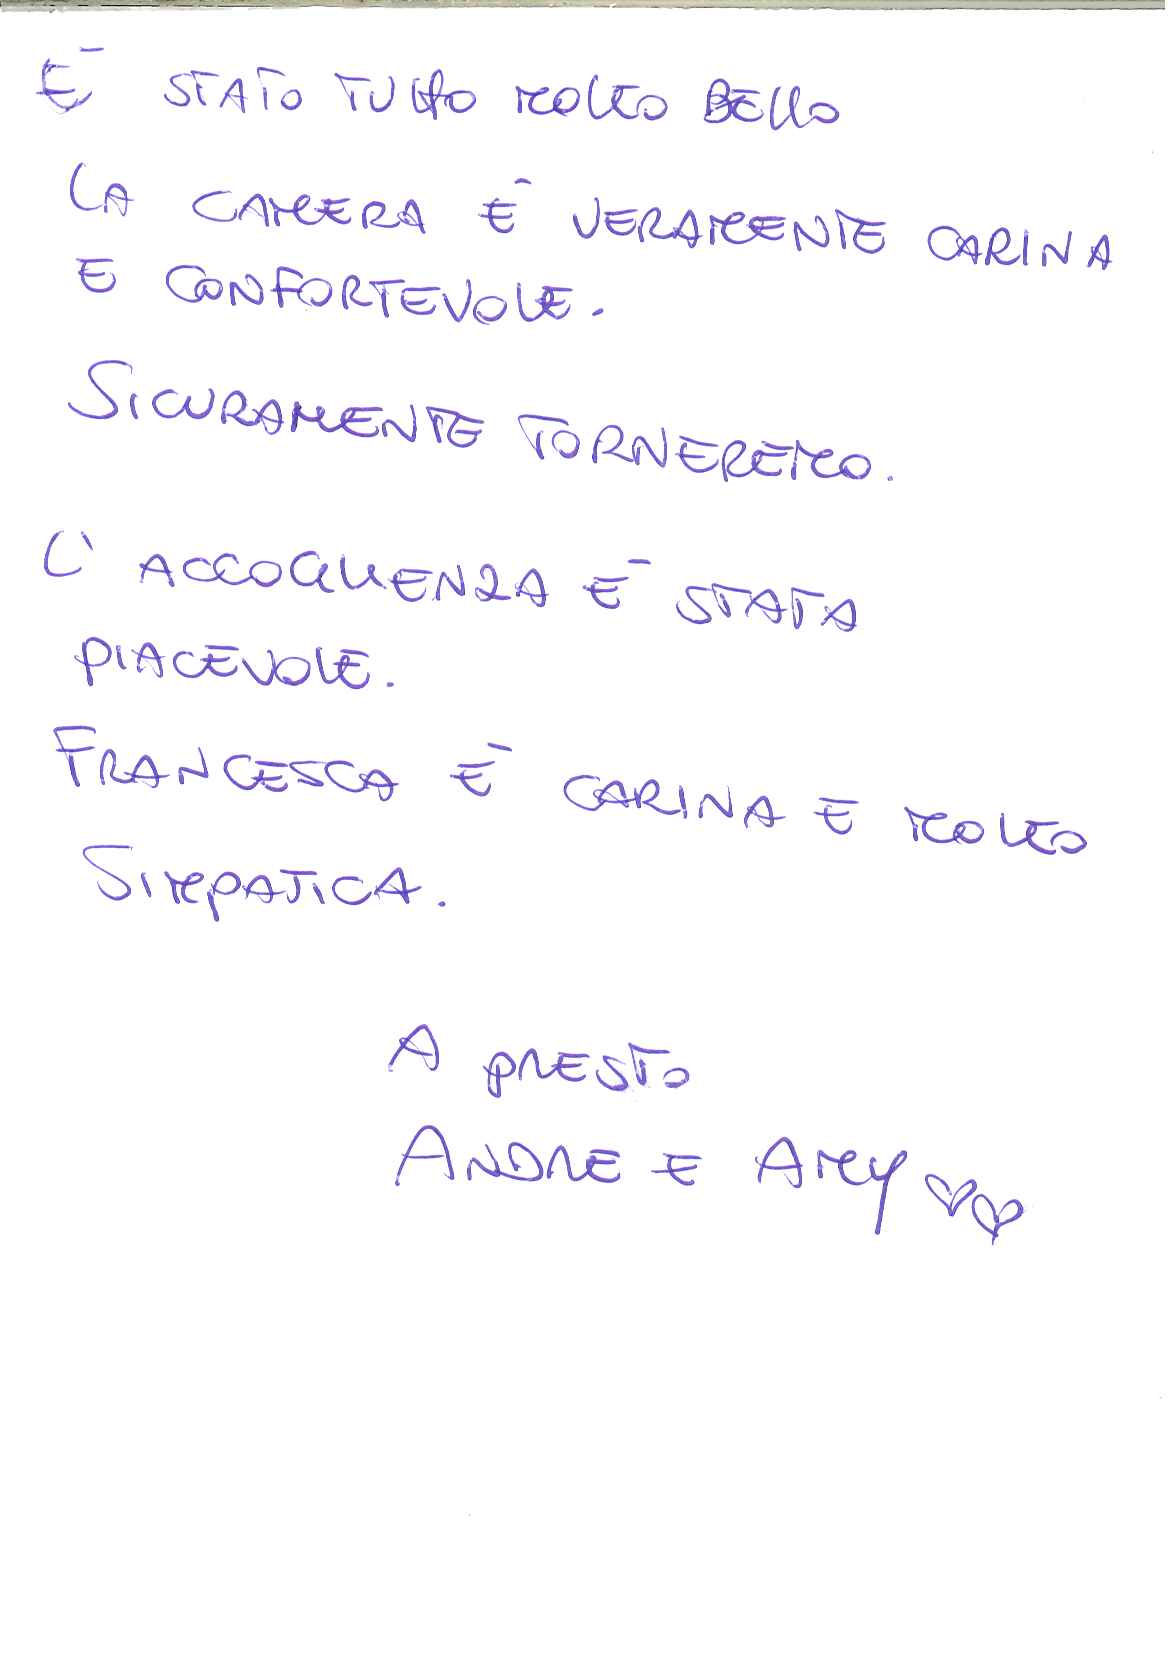 È STATO TUTTO MOLTO BELLO
LA CAMERA È VERAMENTE CARINA
E CONFORTEVOLE.
SICURAMENTE TORNEREMO.
L'ACCOGLIENZA È STATA
PIACEVOLE.
FRANCESCA È CARINA E MOLTO
SIMPATICA.
A PRESTO
ANDRE E AMY